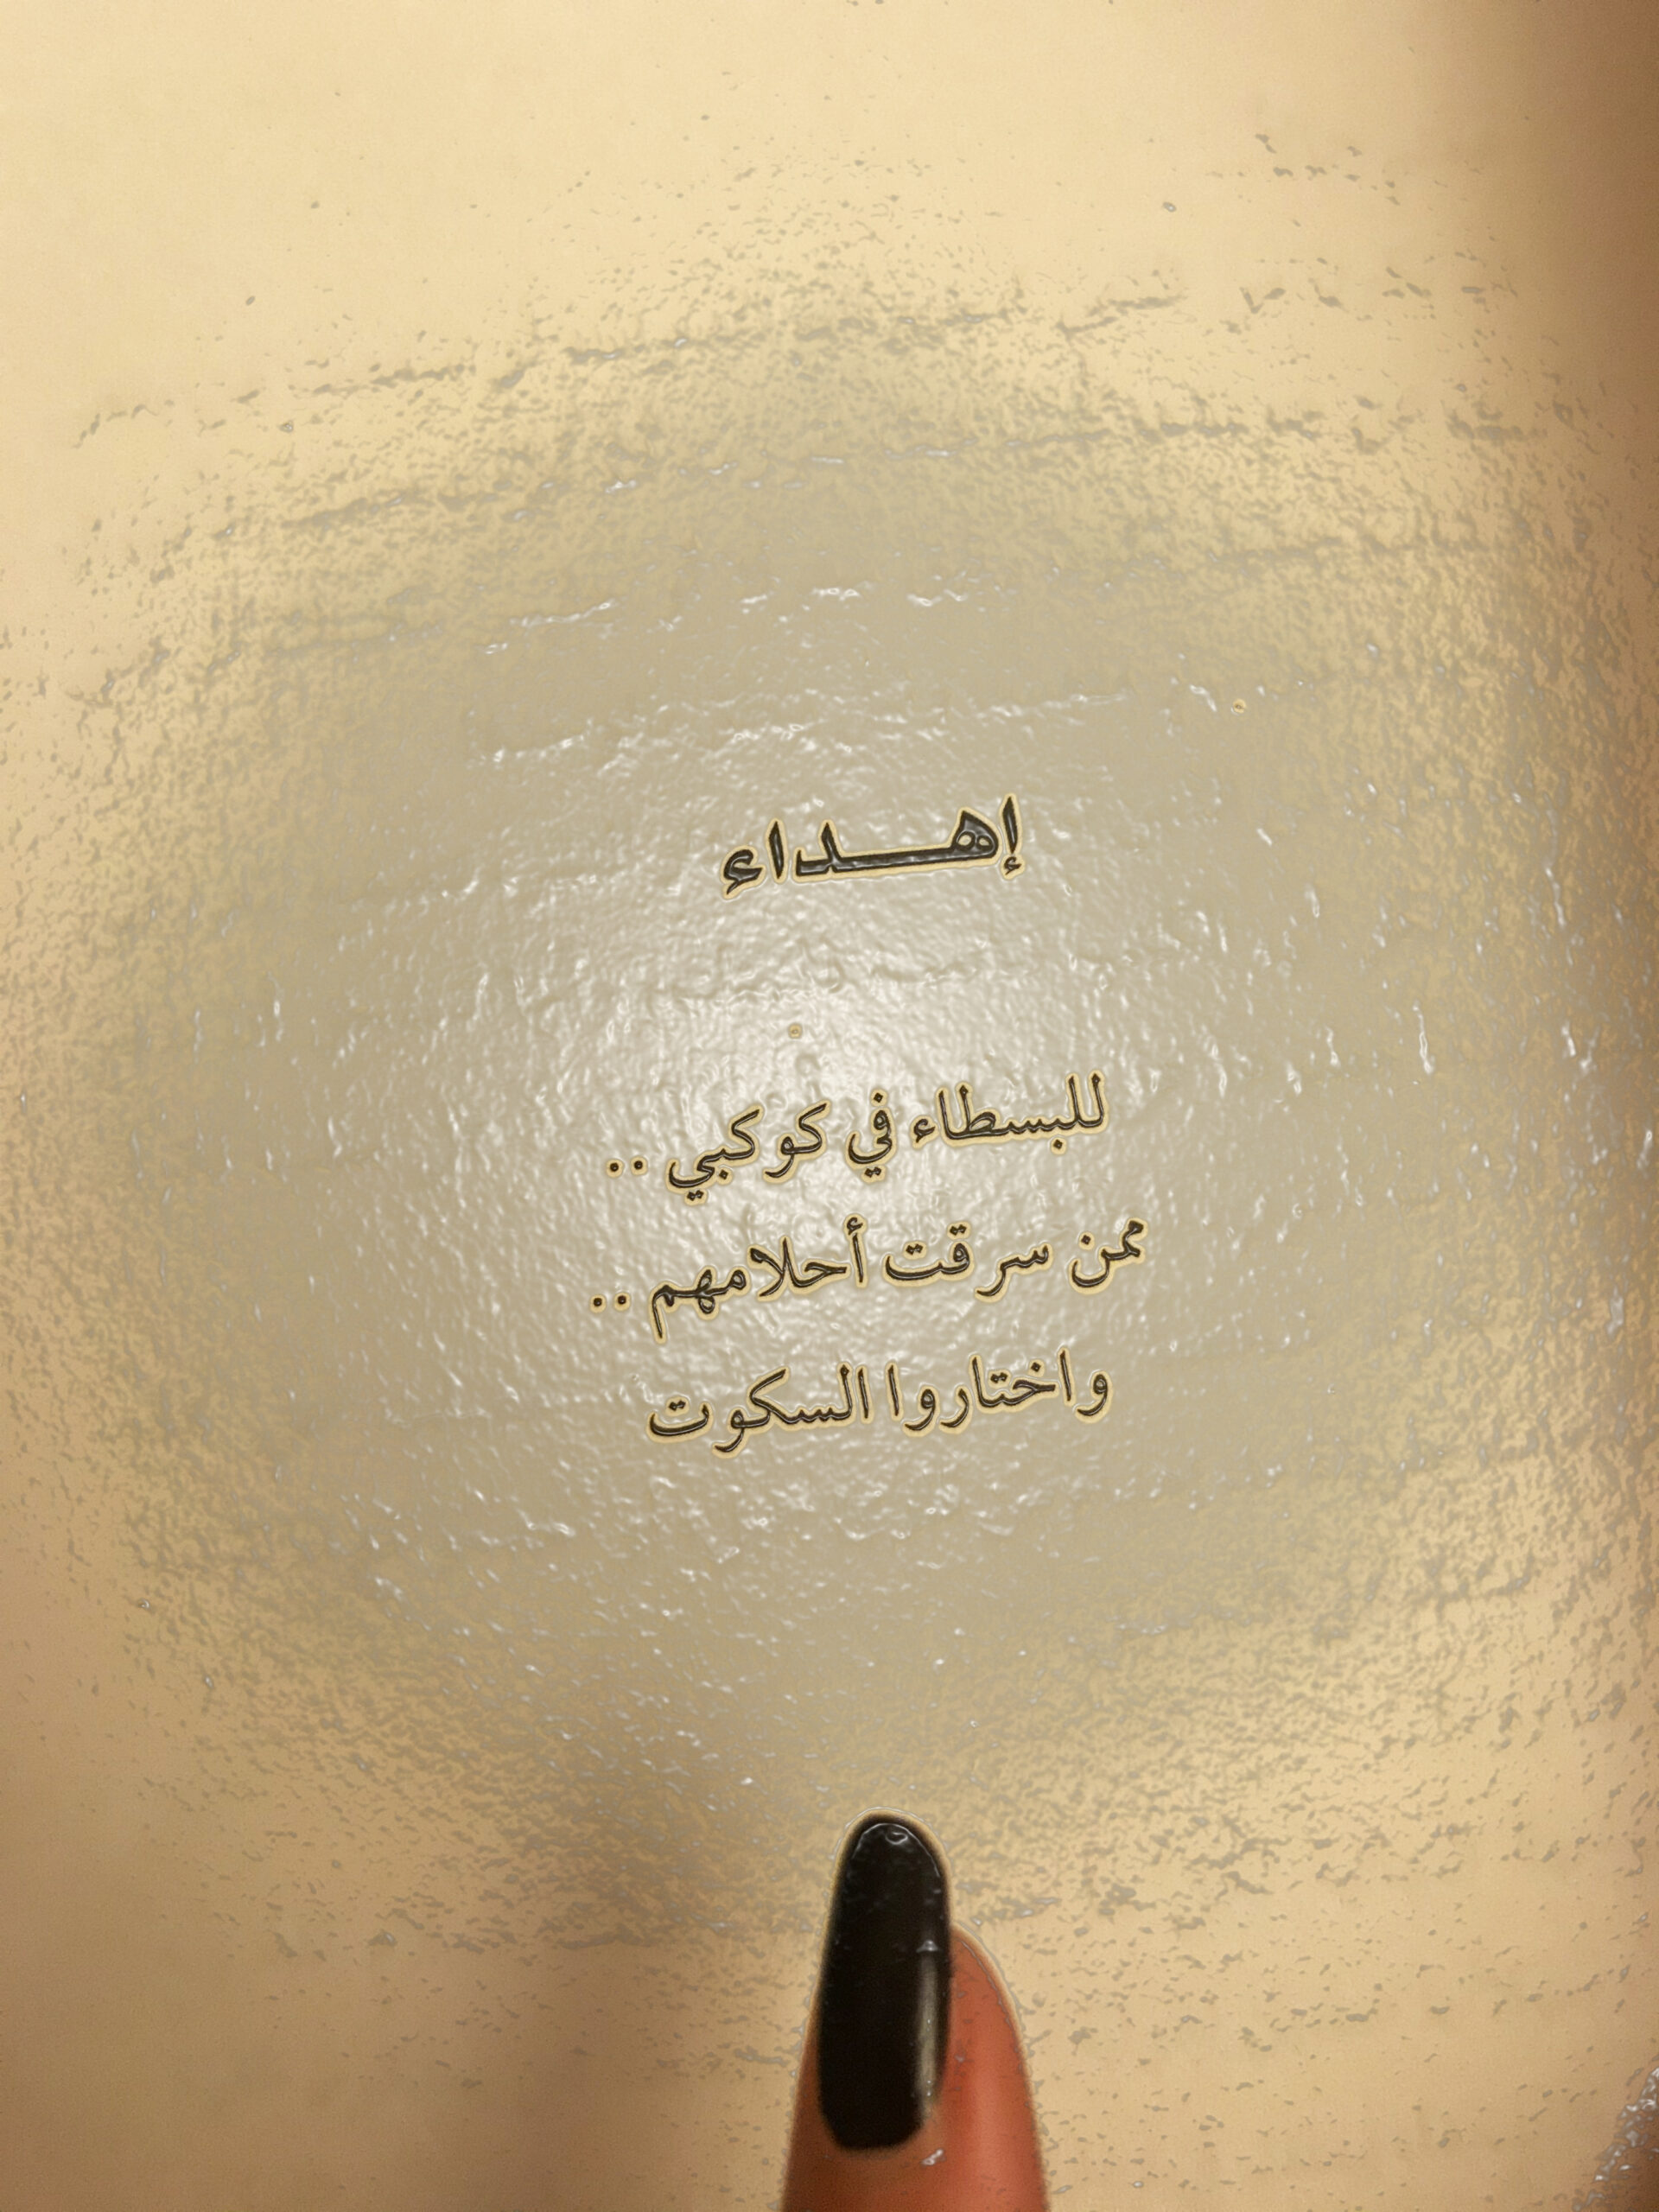 إهـــداء
للبسطاء في كوكبي ..
ممن سرقت أحلامهم ..
واختاروا السكوت